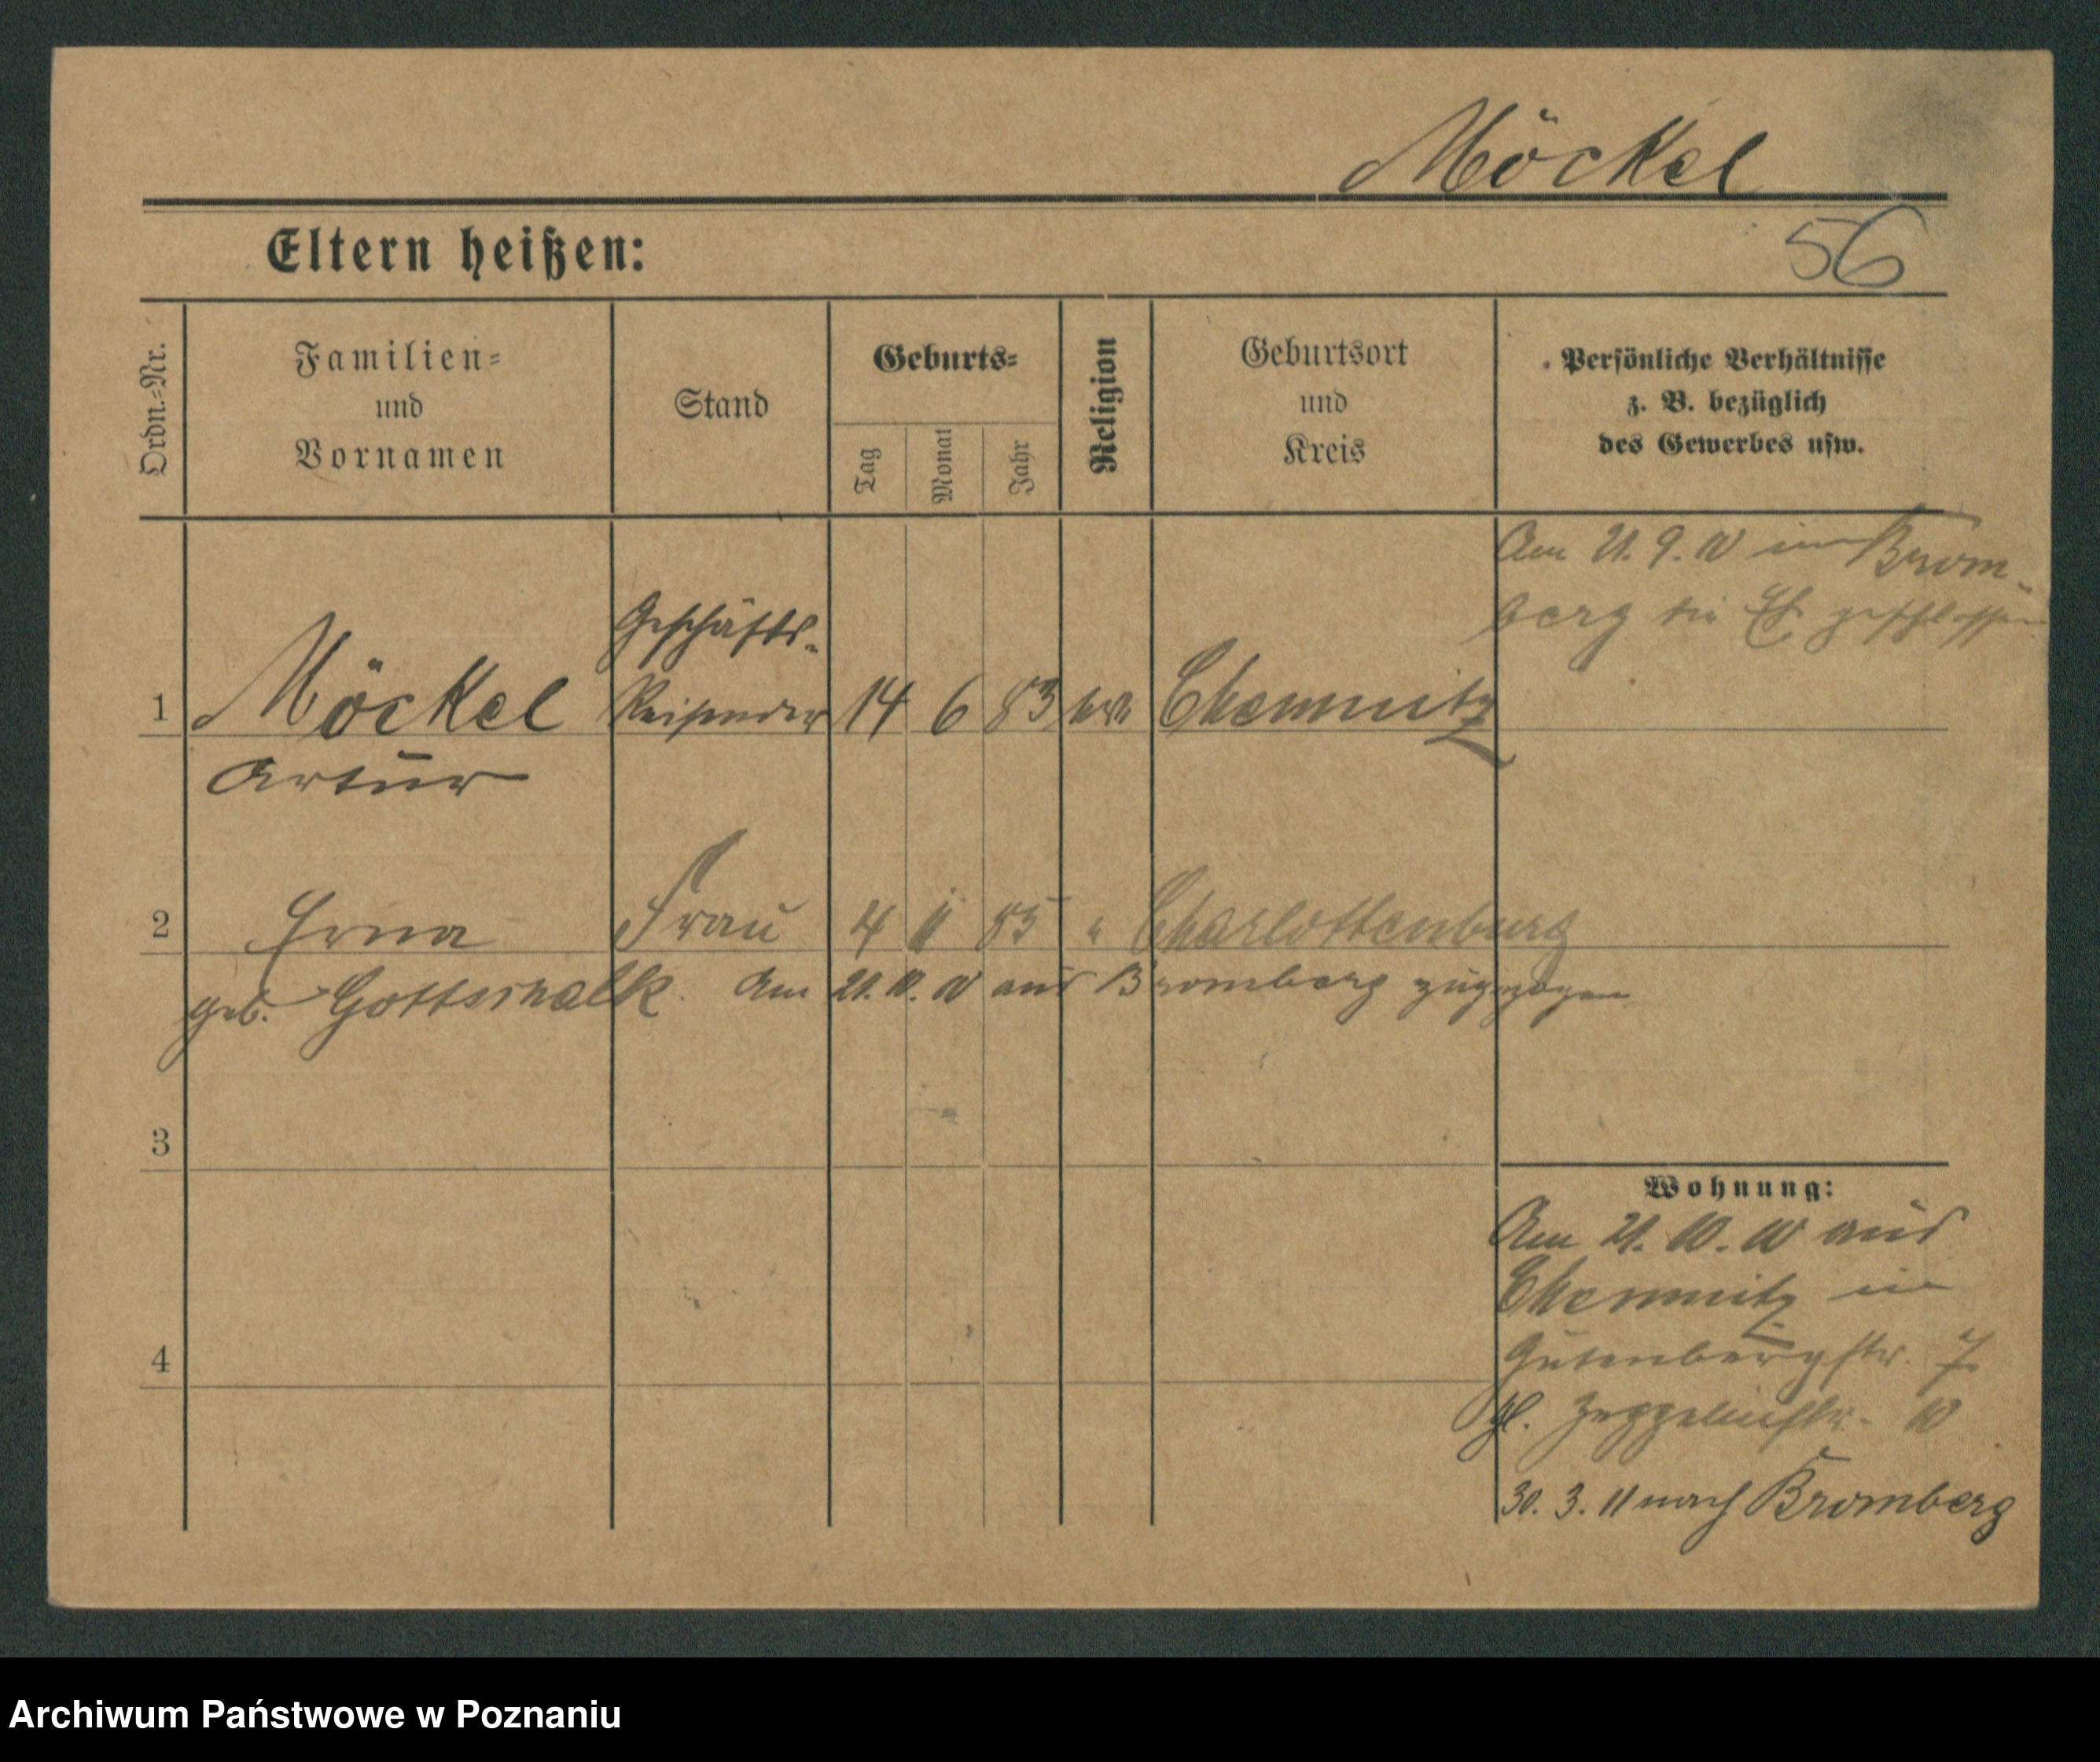 Möckel
Eltern heißen:
56
Ordn.-Nr.
Familien-
und
Vornamen
Stand
Geburts-
Tag
Monat
Jahr
Religion
Geburtsort
und
Kreis
Persönliche Verhältnisse
z. B. bezüglich
des Gewerbes usw.
Am 21. 9. 10 in Brom-
berg die Ehe geschlossen
Geschäfts-
1 Möckel Reisender 14 6 83 Chemnitz
Artur
2 Erna Frau 4 11 85 " Charlottenburg
geb. Gottschalk. Am 21. 10. 10 aus Bromberg zugezogen
3
Wohnung:
Am 21. 10. 10 aus
Chemnitz in
Gutenbergstr. 7
4
Zeppelinstr. 10
30. 3. 11 nach Bromberg
Archiwum Państwowe w Poznaniu